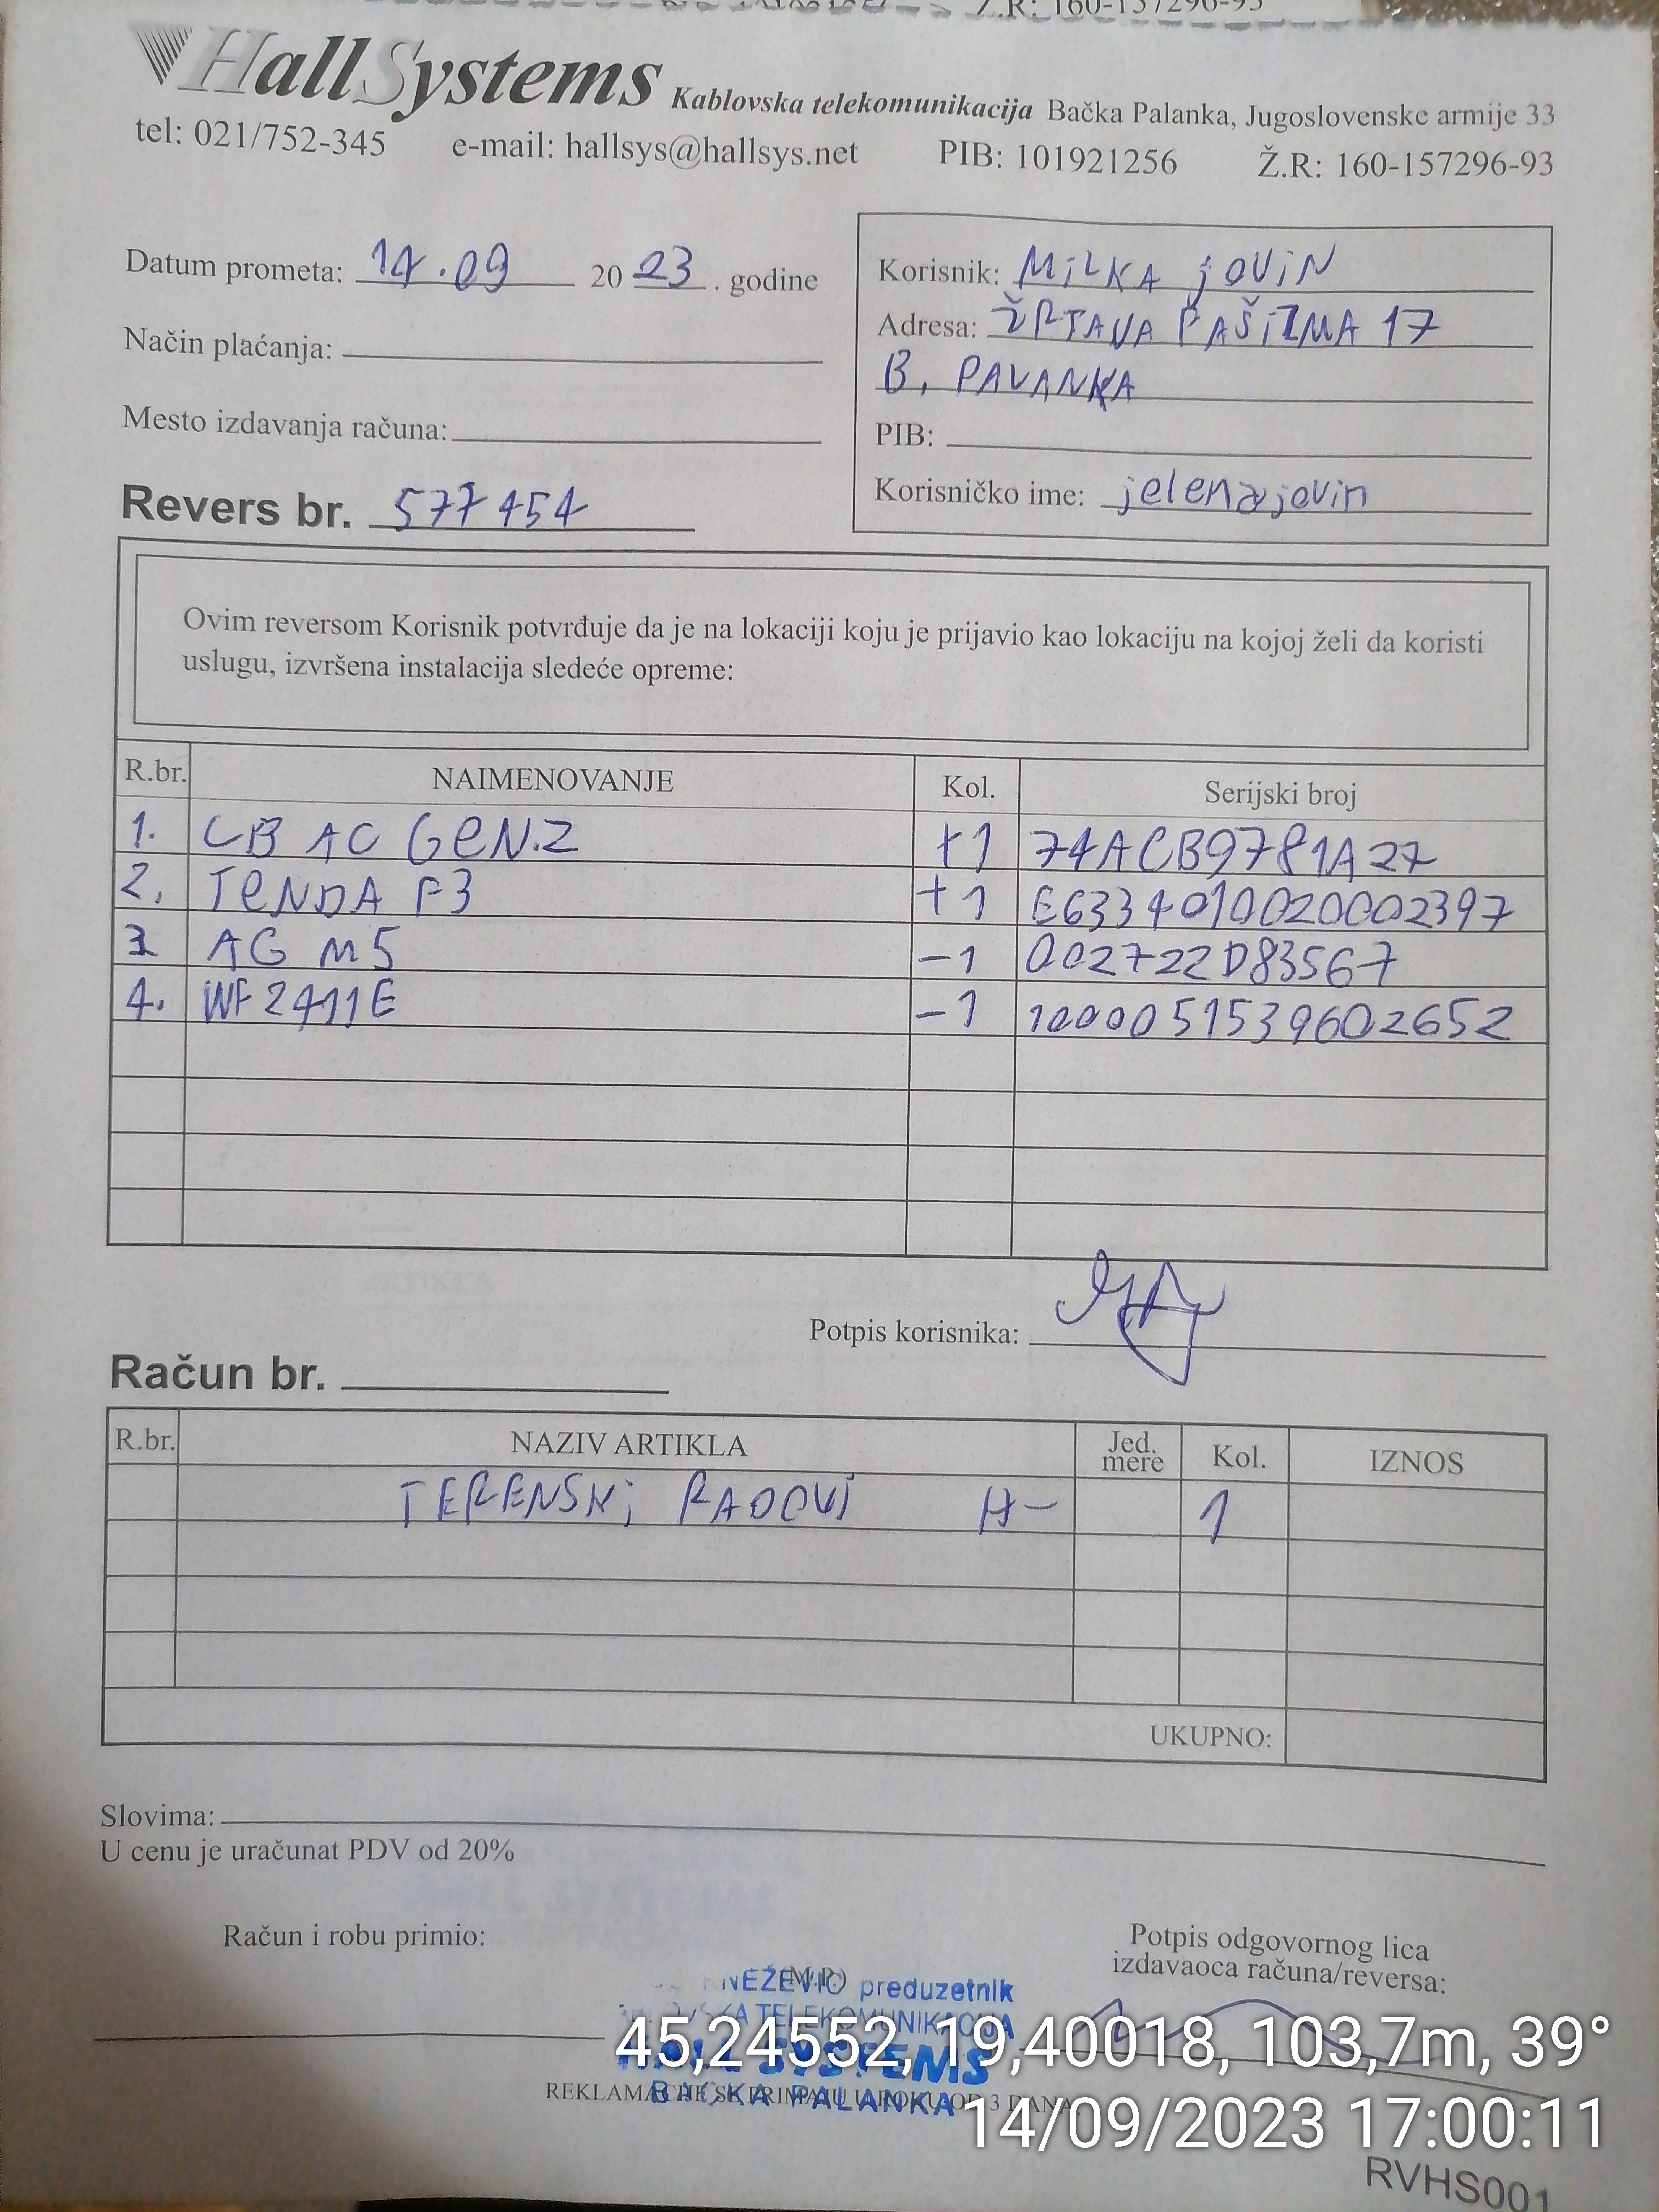 Ž.R: 160-157296-93
HallSystems Kablovska telekomunikacija Bačka Palanka, Jugoslovenske armije 33
tel: 021/752-345 e-mail: hallsys@hallsys.net PIB: 101921256 Ž.R: 160-157296-93
Datum prometa: 14.09 2023. godine
Način plaćanja:
Mesto izdavanja računa:
Revers br. 577454
Korisnik: MILKA jOViN
Adresa: ŽRTAVA FAŠiZMA 17
B. PALANKA
PIB:
Korisničko ime: jelenajovin
Ovim reversom Korisnik potvrđuje da je na lokaciji koju je prijavio kao lokaciju na kojoj želi da koristi
uslugu, izvršena instalacija sledeće opreme:
R.br. NAIMENOVANJE Kol. Serijski broj
1. LB AC GEN.2 +1 74ACB9781A27
2. TENDA F3 +1 E6334010020002397
3 AG M5 -1 002722D83567
4. WF2411E -1 1000051539602652
Potpis korisnika:
Račun br.
R.br. NAZIV ARTIKLA Jed. mere Kol. IZNOS
TERENSKi RADOVi H- 1
UKUPNO:
Slovima:
U cenu je uračunat PDV od 20%
Račun i robu primio:
(M.P.)
Potpis odgovornog lica
izdavaoca računa/reversa:
preduzetnik
TELEKOMUNIKACIJA
HALL SYSTEMS
BAČKA PALANKA
REKLAMACIJE SE PRIMAJU U ROKU OD 3 DANA
45,24552, 19,40018, 103,7m, 39°
14/09/2023 17:00:11
RVHS001